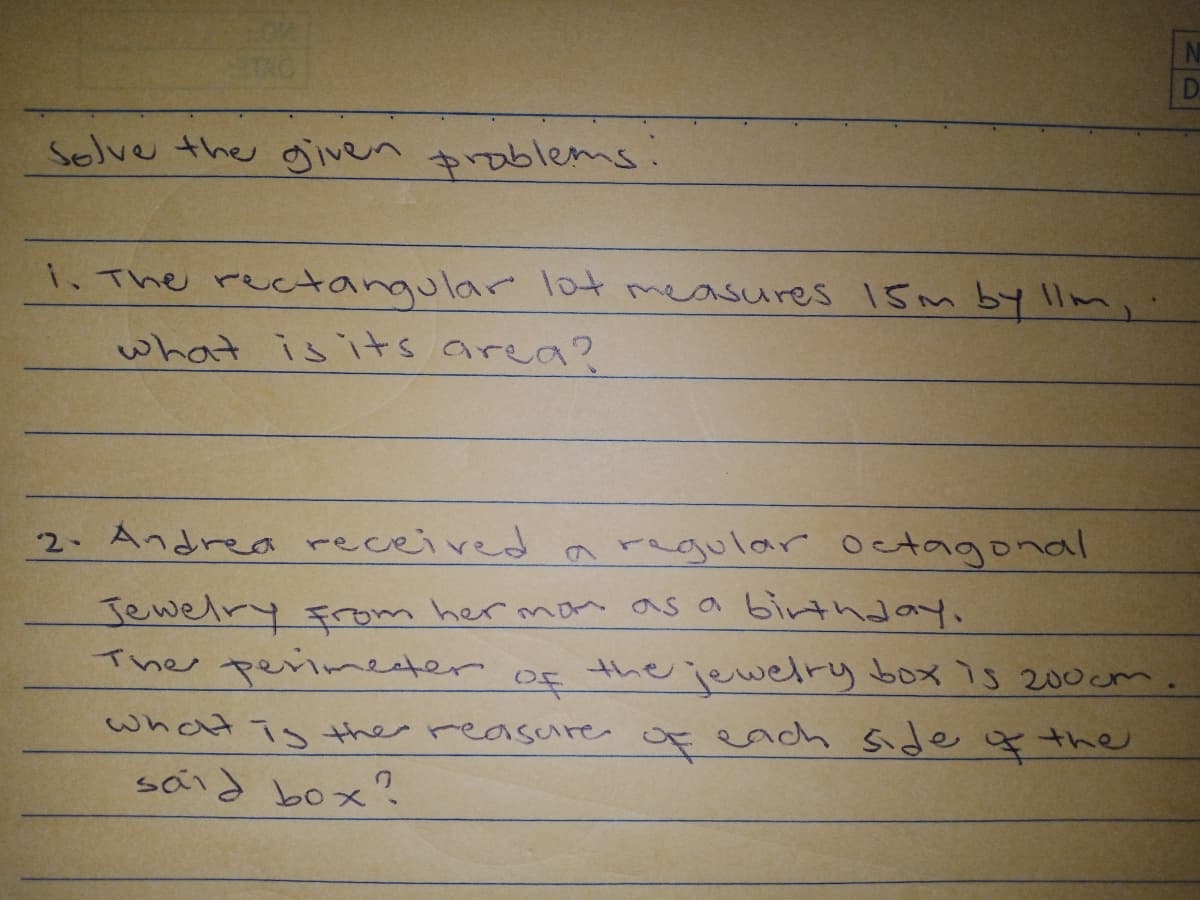 N
D
Solve the given problems:
1. The rectangular lot measures 15m by 11m,
what is its area?
2. Andrea received a regular octagonal
Jewelry from her mom as a birthday.
The perimeter of the jewelry box is 200cm.
what is the reasure of each side of the
said box?